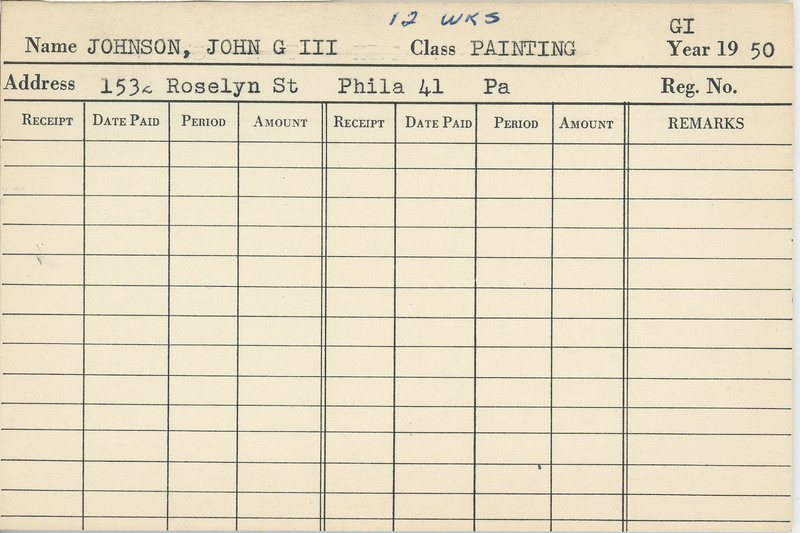 12 WKS
GI
Name JOHNSON, JOHN G III Class PAINTING Year 19 50
Address Roselyn St Phila 41 Pa Reg. No.
RECEIPT DATE PAID PERIOD AMOUNT RECEIPT DATE PAID PERIOD AMOUNT REMARKS